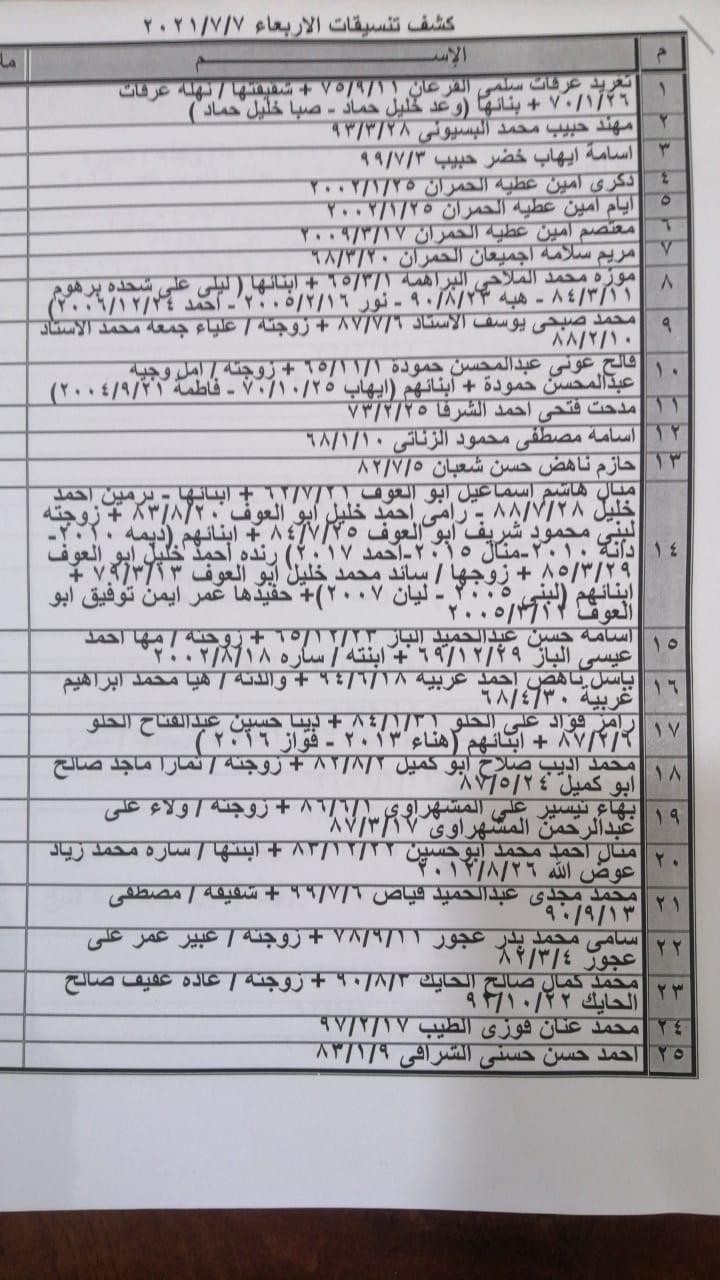 كشف تنسيقات الاربعاء ٢٠٢١/٧/٧
م الإســـــــم ما
١ تغريد عرفات سلمى القرعان ٧٥/٩/١١ + شقيقتها / نهله عرفات
٧٠/١/٢٦ + بناتها (وعد خليل حماد - صبا خليل حماد )
٢ مهند حبيب محمد البسيونى ٩٣/٣/٢٨
٣ اسامة ايهاب خضر حبيب ٩٩/٧/٣
٤ ذكرى امين عطيه الحمران ٢٠٠٢/١/٢٥
٥ ايام امين عطيه الحمران ٢٠٠٢/١/٢٥
٦ معتصم امين عطيه الحمران ٢٠٠٩/٣/١٧
٧ مريم سلامه اجميعان الحمران ٦٨/٣/٢٠
٨ موزه محمد الملاحى البراهمه ٦٥/٣/١ + ابنائها ( ليلى على شحده برهوم
٨٤/٣/١١ - هبه ٩٠/٨/٢٣ - نور ٢٠٠٥/٢/١٦ - احمد ٢٠٠٦/١٢/٢٤)
٩ محمد صبحى يوسف الاستاد ٨٧/٧/٦ + زوجته / علياء جمعه محمد الاستاد
٨٨/٢/١٠
١٠ فالح عونى عبدالمحسن حمودة ٦٥/١١/١ + زوجته / امل وجيه
عبدالمحسن حمودة + ابنائهم (ايهاب ٧٠/١٠/٢٥ - فاطمة ٢٠٠٤/٩/٢١)
١١ مدحت فتحى احمد الشرفا ٧٣/٢/٢٥
١٢ اسامه مصطفى محمود الزناتى ٦٨/١/١٠
١٣ حازم ناهض حسن شعبان ٨٢/٧/٥
١٤ منال هاشم إسماعيل ابو العوف ٦٢/٧/٢١ + ابنائها - يرمين احمد
خليل ٨٨/٧/٢٨ - رامى احمد خليل ابو العوف ٨٣/٨/٢٠ + زوجته
لبنى محمود شريف ابو العوف ٨٤/٧/٢٥ + ابنائهم (ديمه ٢٠١٠-
دانه ٢٠١٠-منال ٢٠١٥-احمد ٢٠١٧) رنده احمد خليل ابو العوف
٨٥/٣/٢٩ + زوجها / سائد محمد خليل ابو العوف ٧٩/٣/١٣ +
ابنائهم (لبنى ٢٠٠٥ - ليان ٢٠٠٧)+ حفيدها عمر ايمن توفيق ابو
العوف ٢٠٠٥/٣/١٢
١٥ اسامه حسن عبدالحميد الباز ٦٥/١٢/٢٣ + زوجته / مها احمد
عيسى الباز ٦٩/١٢/٢٩ + ابنته / ساره ٢٠٠٢/٨/١٨
١٦ باسل ناهض احمد غربيه ٩٤/٦/١٨ + والدته / هيا محمد ابراهيم
غربية ٦٨/٤/٣٠
١٧ رامز فؤاد على الحلو ٨٤/١/٣١ + دينا حسين عبدالفتاح الحلو
٨٧/٢/٦ + ابنائهم (هناء ٢٠١٣ - فواز ٢٠١٦ )
١٨ محمد اديب صلاح ابو كميل ٨٢/٨/٢ + زوجته / تمارا ماجد صالح
ابو كميل ٨٧/٥/٢٤
١٩ بهاء تيسير على المشهراوى ٨٦/٦/١ + زوجته / ولاء على
عبدالرحمن المشهراوى ٨٧/٣/١٧
٢٠ منال احمد محمد ابوحسين ٨٣/١٢/٢٢ + ابنتها / ساره محمد زياد
عوض الله ٢٠١٢/٨/٢٦
٢١ محمد مجدى عبدالحميد فياض ٩٩/٧/٦ + شقيقه / مصطفى
٩٠/٩/١٣
٢٢ سامى محمد بدر عجور ٧٨/٩/١١ + زوجته / عبير عمر على
عجور ٨٢/٣/٤
٢٣ محمد كمال صالح الحايك ٩٠/٨/٣ + زوجته / غاده عفيف صالح
الحايك ٩٢/١٠/٢٢
٢٤ محمد عنان فوزى الطيب ٩٧/٢/١٧
٢٥ احمد حسن حسنى الشرافى ٨٣/١/٩